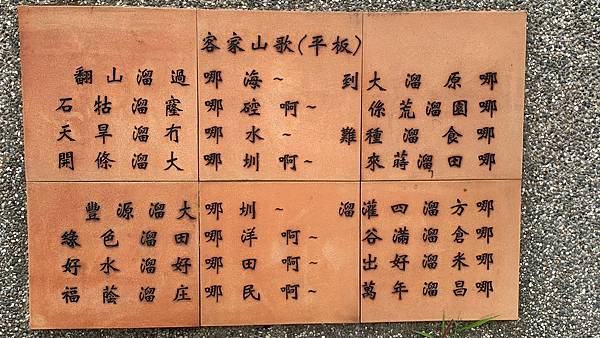 客家山歌(平板)
翻山溜過哪海~到大溜原哪
石牯溜窿哪硿啊~係荒溜園哪
天旱溜冇哪水~難種溜食哪
開條溜大哪圳啊~來蒔溜田哪
豐源溜大哪圳~溜灌四溜方哪
綠色溜田哪洋啊~谷滿溜倉哪
好水溜好哪田啊~出好溜米哪
福蔭溜庄哪民啊~萬年溜昌哪